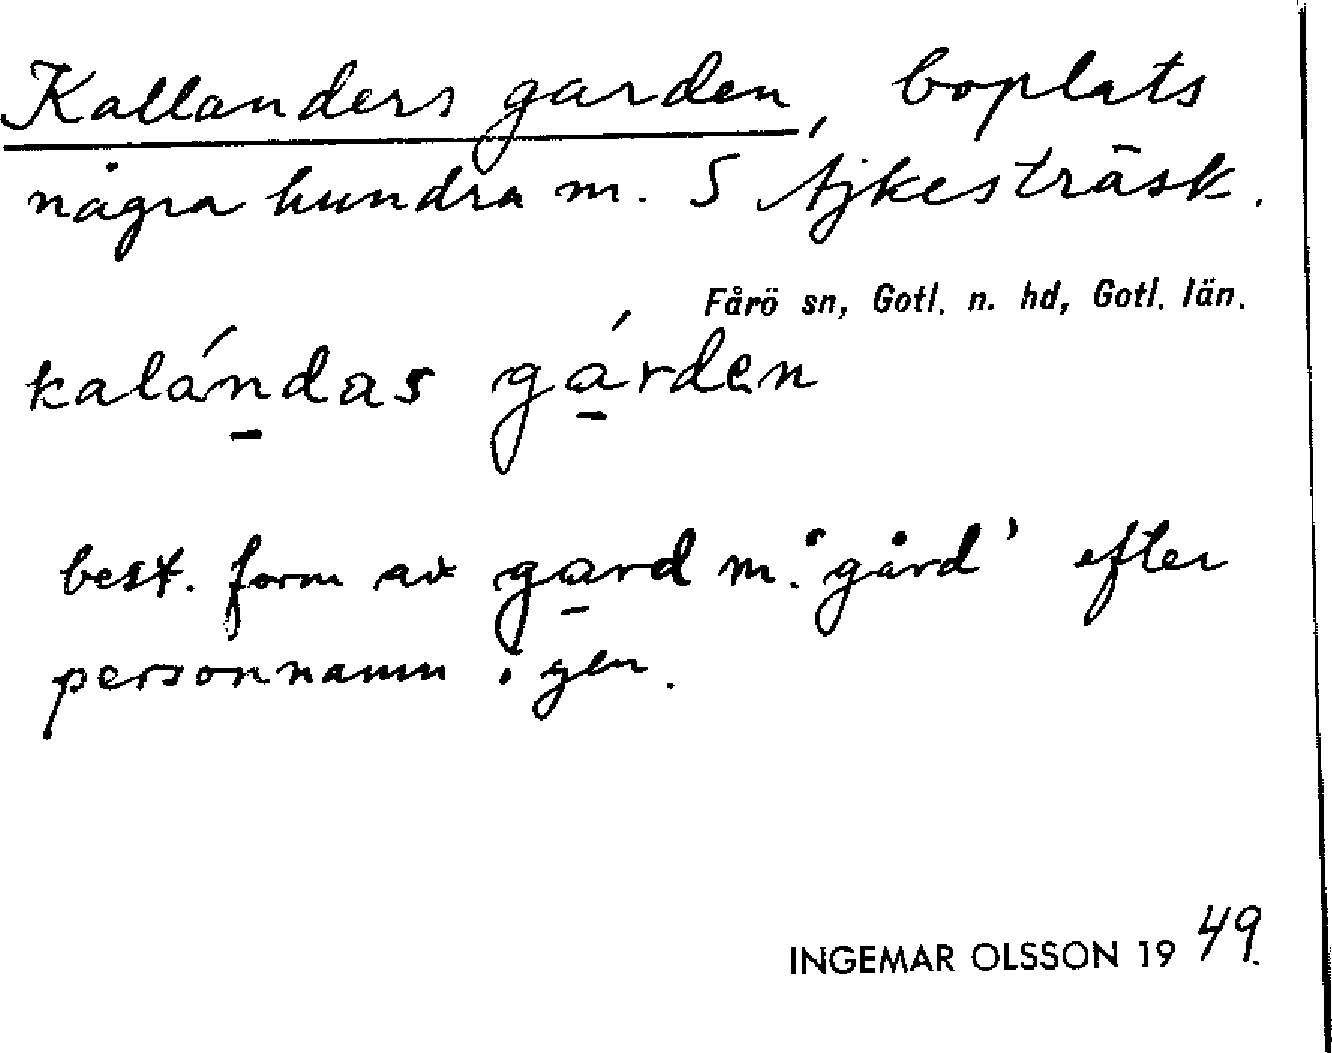 Kallanders garden, boplats
några hundra m. S Ajkesträsk.
Fårö sn, Gotl. n. hd, Gotl. län.
kalándas gárden
best. form av gard m. 'gård' efter
personnamn i gen.
INGEMAR OLSSON 1949.